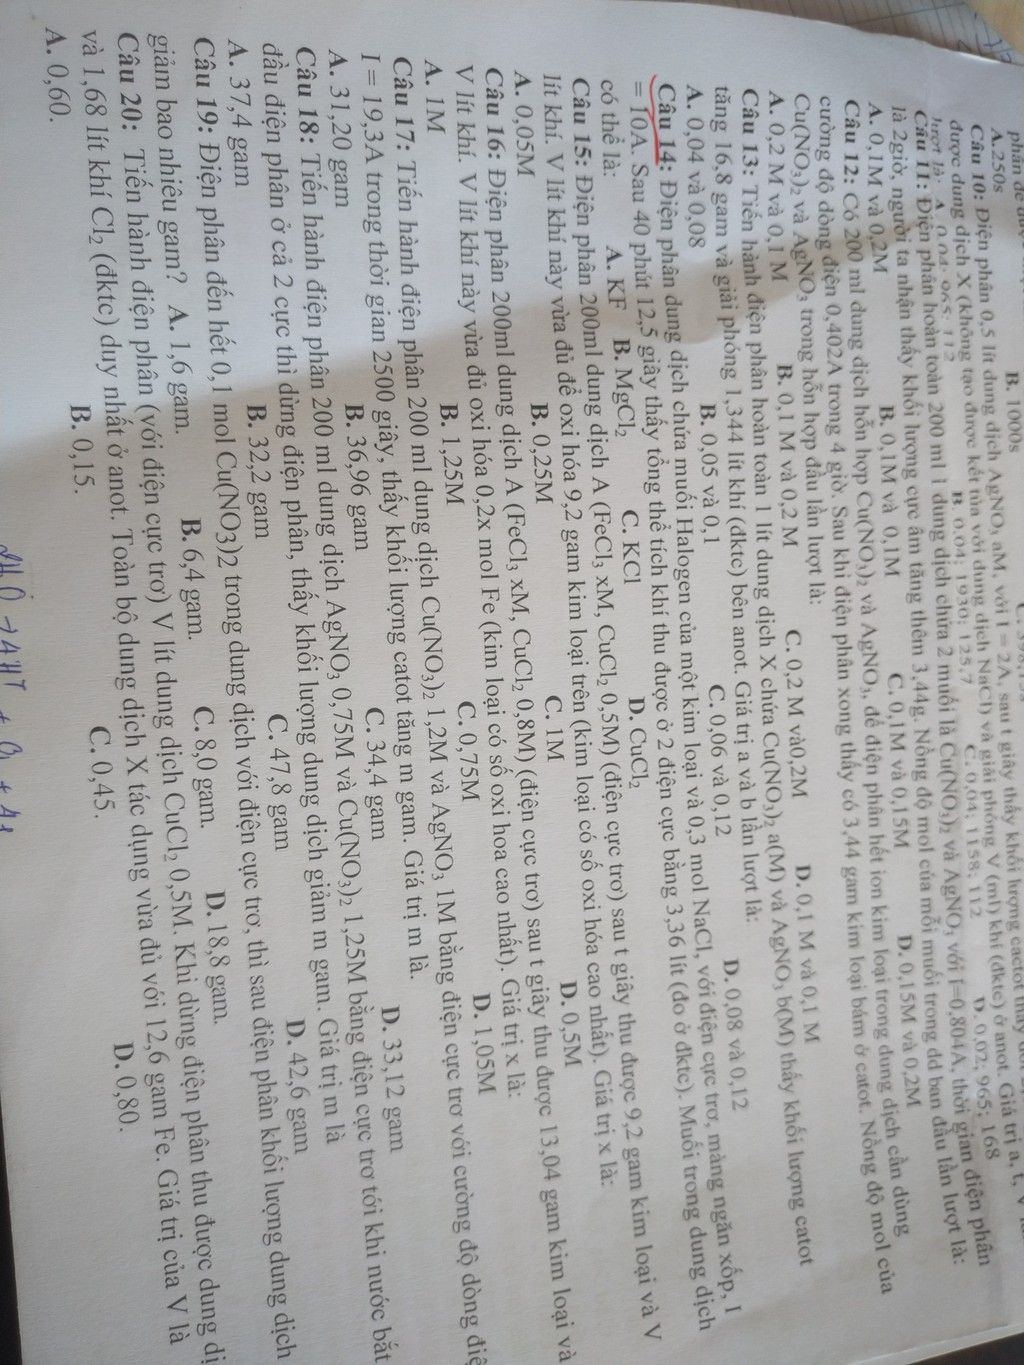 phân để
A.250s B. 1000s
Câu 10: Điện phân 0,5 lít dung dịch AgNO₃ aM, với I = 2A, sau t giây thấy khối lượng catot thấy
được dung dịch X (không tạo được kết tủa với dung dịch NaCl) và giải phóng V (ml) khí (đktc) ở anot. Giá trị a, t, V
lượt là: A. 0,04; 965; 112 B. 0,04; 1930; 125,7 C. 0,04; 1158; 112 D. 0,02; 965; 168
Câu 11: Điện phân hoàn toàn 200 ml 1 dung dịch chứa 2 muối là Cu(NO₃)₂ và AgNO₃ với I=0,804A, thời gian điện phân
là 2giờ, người ta nhận thấy khối lượng cực âm tăng thêm 3,44g. Nồng độ mol của mỗi muối trong dd ban đầu lần lượt là:
A. 0,1M và 0,2M B. 0,1M và 0,1M C. 0,1M và 0,15M D. 0,15M và 0,2M
Câu 12: Có 200 ml dung dịch hỗn hợp Cu(NO₃)₂ và AgNO₃, để điện phân hết ion kim loại trong dung dịch cần dùng
cường độ dòng điện 0,402A trong 4 giờ. Sau khi điện phân xong thấy có 3,44 gam kim loại bám ở catot. Nồng độ mol của
Cu(NO₃)₂ và AgNO₃ trong hỗn hợp đầu lần lượt là:
A. 0,2 M và 0,1 M B. 0,1 M và 0,2 M C. 0,2 M và0,2M D. 0,1 M và 0,1 M
Câu 13: Tiến hành điện phân hoàn toàn 1 lít dung dịch X chứa Cu(NO₃)₂ a(M) và AgNO₃ b(M) thấy khối lượng catot
tăng 16,8 gam và giải phóng 1,344 lít khí (đktc) bên anot. Giá trị a và b lần lượt là:
A. 0,04 và 0,08 B. 0,05 và 0,1 C. 0,06 và 0,12 D. 0,08 và 0,12
Câu 14: Điện phân dung dịch chứa muối Halogen của một kim loại và 0,3 mol NaCl, với điện cực trơ, màng ngăn xốp, I
= 10A. Sau 40 phút 12,5 giây thấy tổng thể tích khí thu được ở 2 điện cực bằng 3,36 lít (đo ở đktc). Muối trong dung dịch
có thể là: A. KF B. MgCl₂ C. KCl D. CuCl₂
Câu 15: Điện phân 200ml dung dịch A (FeCl₃ xM, CuCl₂ 0,5M) (điện cực trơ) sau t giây thu được 9,2 gam kim loại và V
lít khí. V lít khí này vừa đủ để oxi hóa 9,2 gam kim loại trên (kim loại có số oxi hóa cao nhất). Giá trị x là:
A. 0,05M B. 0,25M C. 1M D. 0,5M
Câu 16: Điện phân 200ml dung dịch A (FeCl₃ xM, CuCl₂ 0,8M) (điện cực trơ) sau t giây thu được 13,04 gam kim loại và
V lít khí. V lít khí này vừa đủ oxi hóa 0,2x mol Fe (kim loại có số oxi hoa cao nhất). Giá trị x là:
A. 1M B. 1,25M C. 0,75M D. 1,05M
Câu 17: Tiến hành điện phân 200 ml dung dịch Cu(NO₃)₂ 1,2M và AgNO₃ 1M bằng điện cực trơ với cường độ dòng điệ
I = 19,3A trong thời gian 2500 giây, thấy khối lượng catot tăng m gam. Giá trị m là.
A. 31,20 gam B. 36,96 gam C. 34,4 gam D. 33,12 gam
Câu 18: Tiến hành điện phân 200 ml dung dịch AgNO₃ 0,75M và Cu(NO₃)₂ 1,25M bằng điện cực trơ tới khi nước bắt
đầu điện phân ở cả 2 cực thì dừng điện phân, thấy khối lượng dung dịch giảm m gam. Giá trị m là
A. 37,4 gam B. 32,2 gam C. 47,8 gam D. 42,6 gam
Câu 19: Điện phân đến hết 0,1 mol Cu(NO3)2 trong dung dịch với điện cực trơ, thì sau điện phân khối lượng dung dịch
giảm bao nhiêu gam? A. 1,6 gam. B. 6,4 gam. C. 8,0 gam. D. 18,8 gam.
Câu 20: Tiến hành điện phân (với điện cực trơ) V lít dung dịch CuCl₂ 0,5M. Khi dừng điện phân thu được dung dị
và 1,68 lít khí Cl₂ (đktc) duy nhất ở anot. Toàn bộ dung dịch X tác dụng vừa đủ với 12,6 gam Fe. Giá trị của V là
A. 0,60. B. 0,15. C. 0,45. D. 0,80.